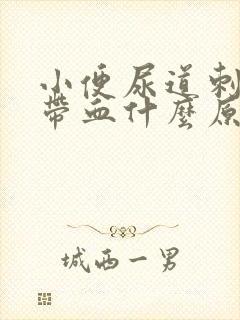 小便尿道刺
帶血什麼原
城西一男